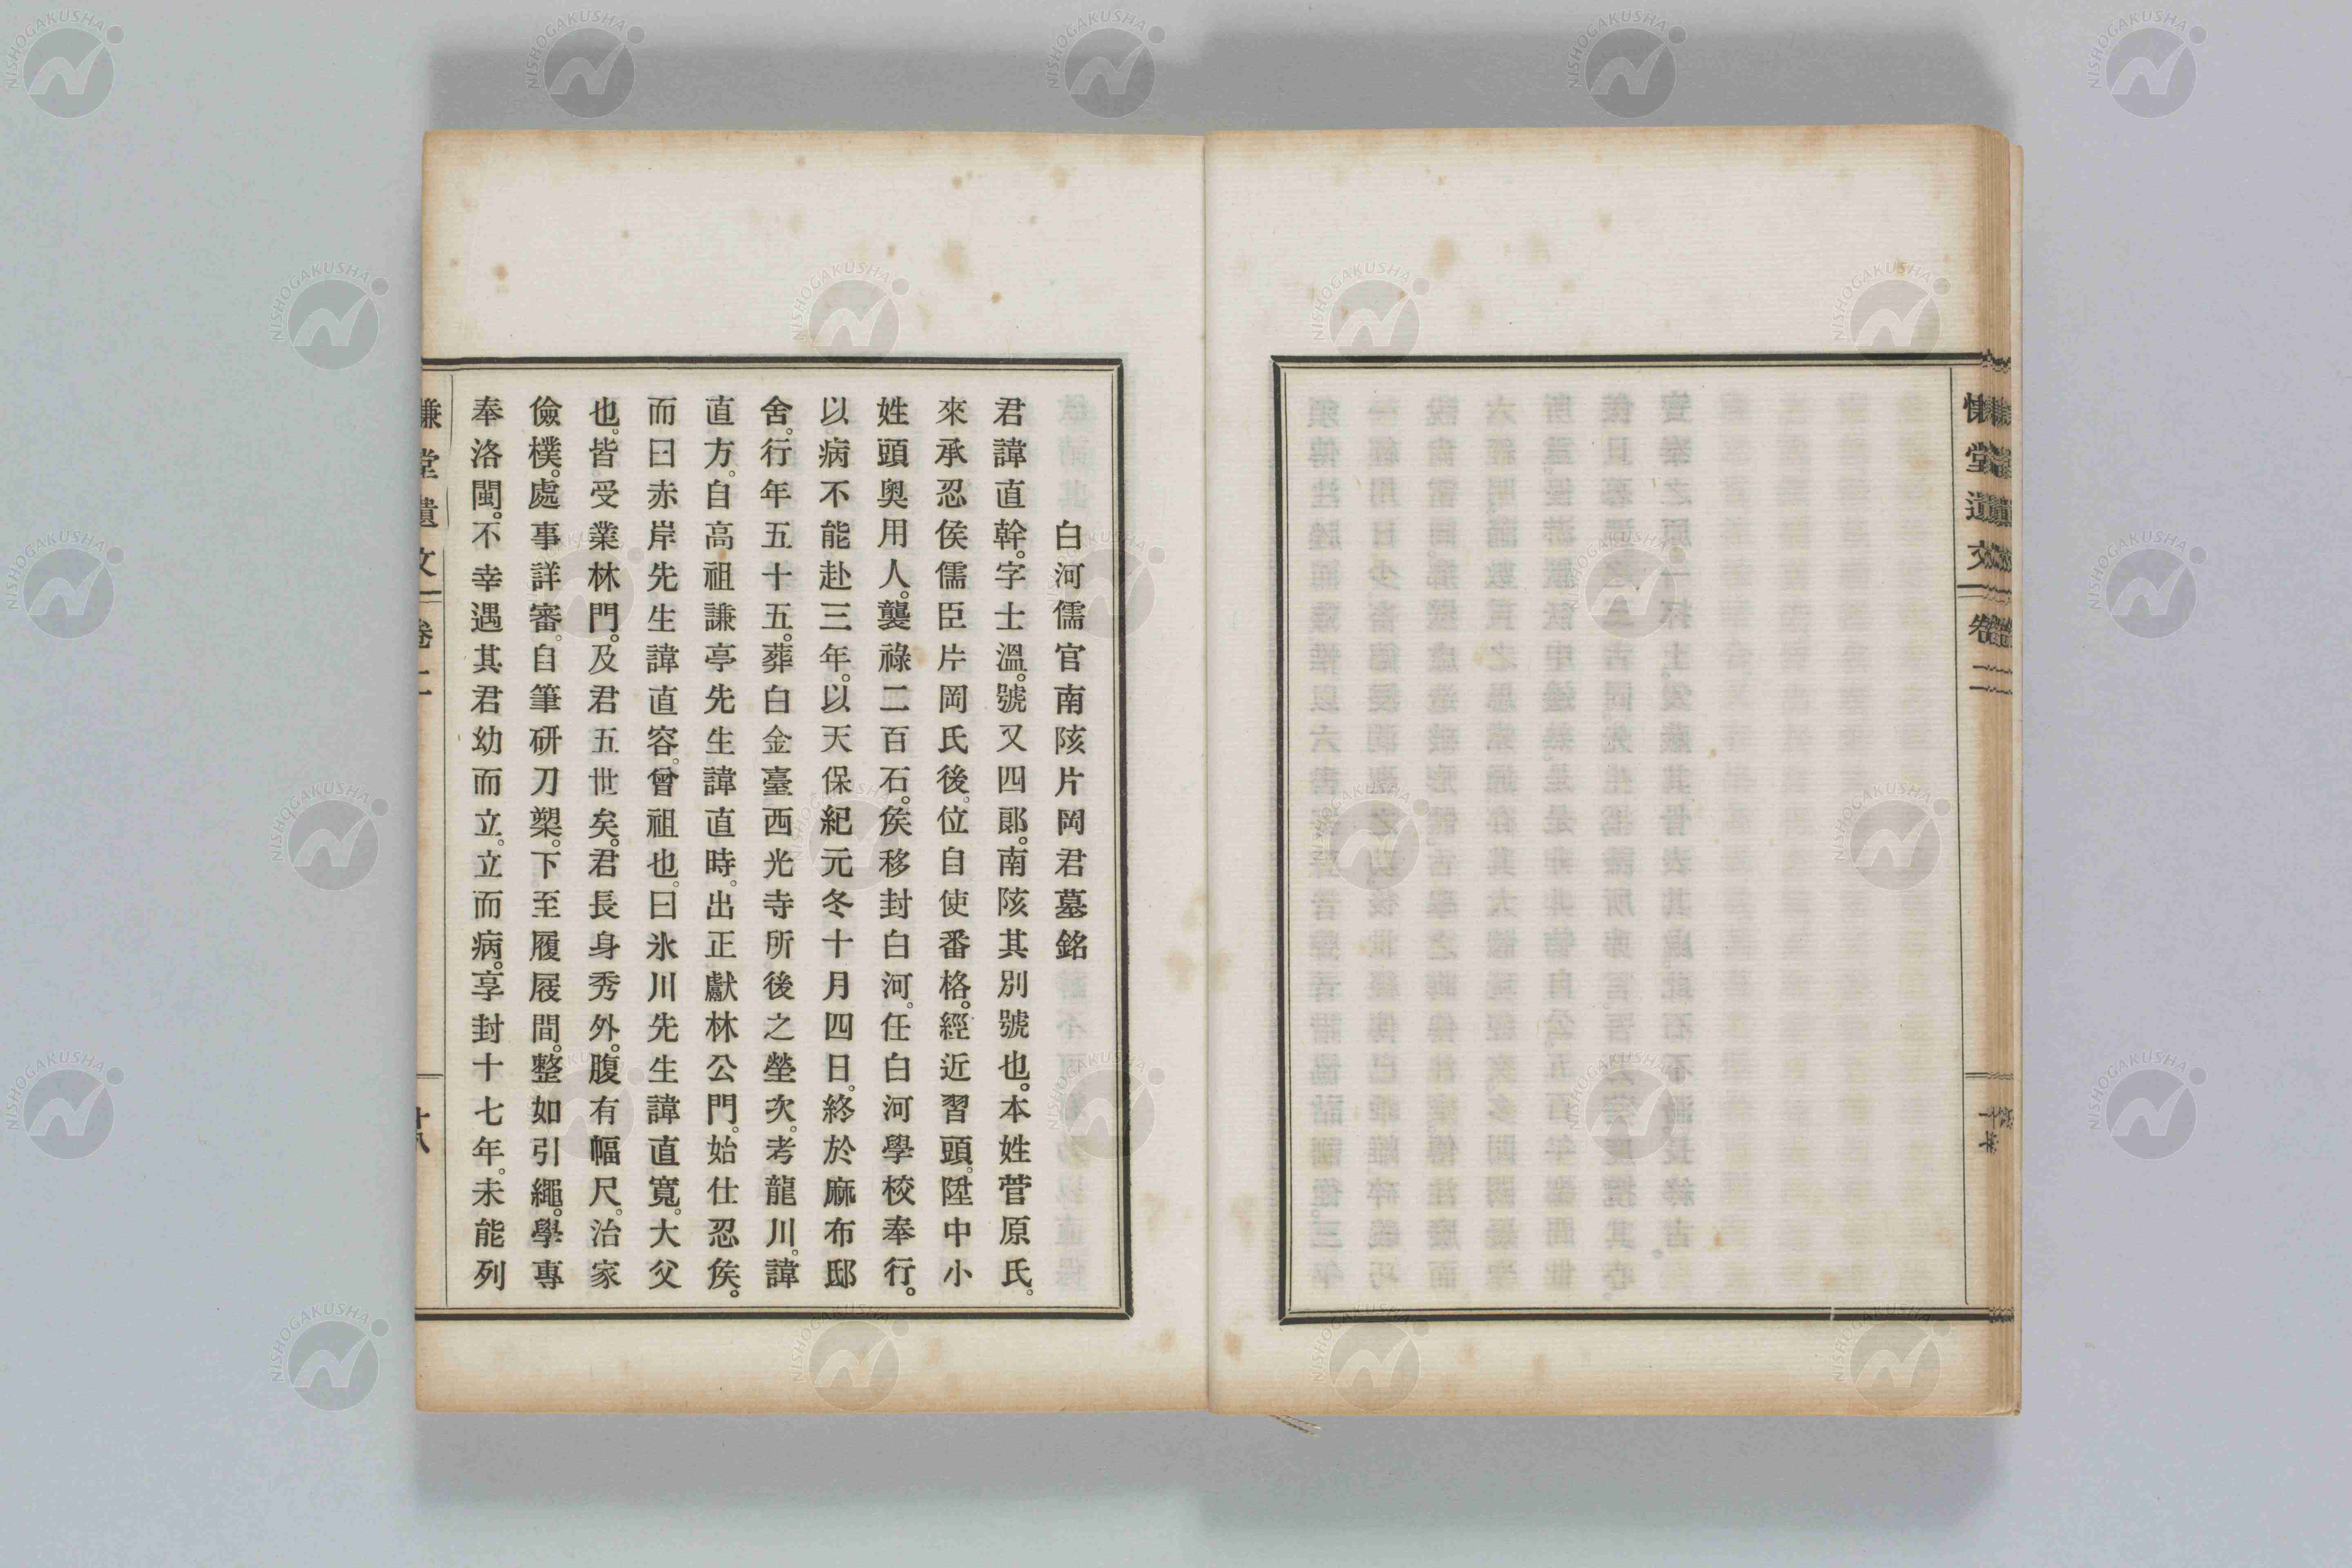 慊堂遺文
卷二
白河儒官南陔片岡君墓銘
君諱直幹。字士溫。號又四郎。南陔其別號也。本姓菅原氏。
來承忍侯儒臣片岡氏後。位自使番格。經近習頭。陞中小
姓頭奧用人。襲祿二百石。侯移封白河。任白河學校奉行。
以病不能赴三年。以天保紀元冬十月四日。終於麻布邸
舍。行年五十五。葬白金臺西光寺所後之塋次。考龍川。諱
直方。自高祖謙亭先生諱直時。出正獻林公門。始仕忍侯。
而曰赤岸先生諱直容。曾祖也。曰氷川先生諱直寬。大父
也。皆受業林門。及君五世矣。君長身秀外。腹有幅尺。治家
儉樸。處事詳審。自筆研刀槊。下至履屐間。整如引繩。學專
奉洛閩。不幸遇其君幼而立。立而病。享封十七年。未能列
慊堂遺文
卷二
十八
NISHOGAKUSHA